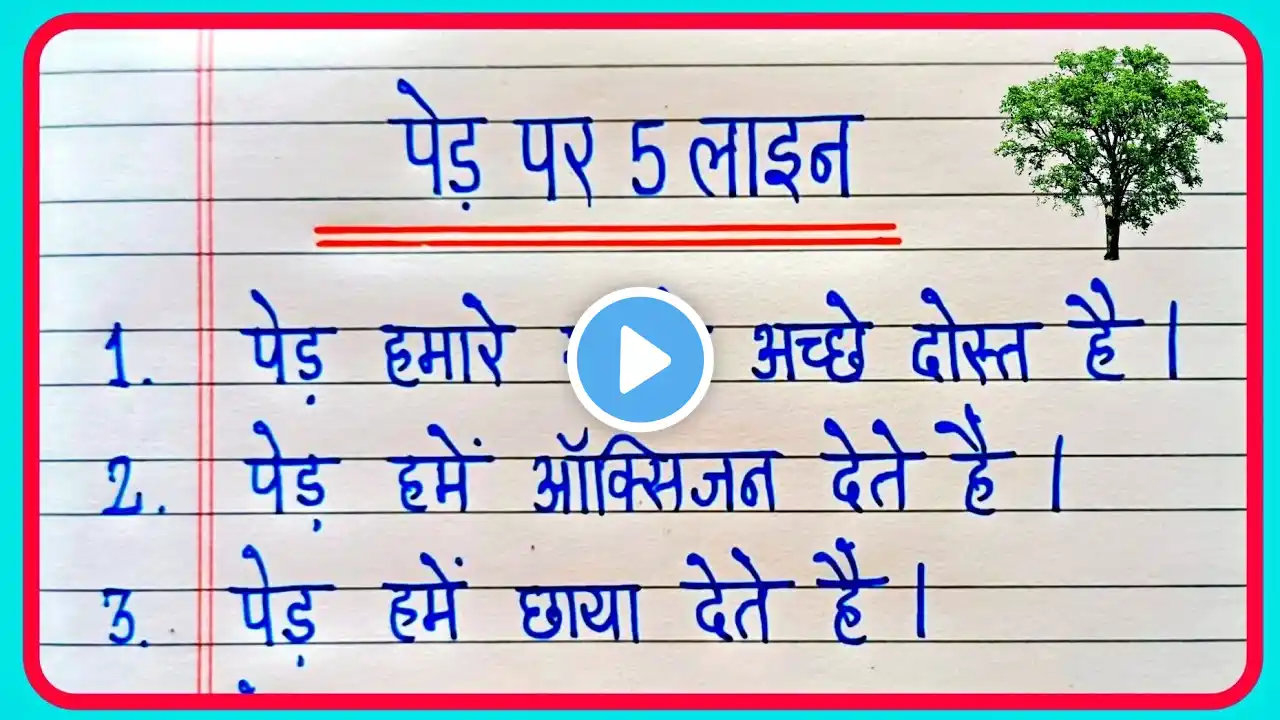 पेड़ पर 5 लाइन
1. पेड़ हमारे अच्छे दोस्त है ।
2. पेड़ हमें ऑक्सिजन देते हैं ।
3. पेड़ हमें छाया देते हैं ।